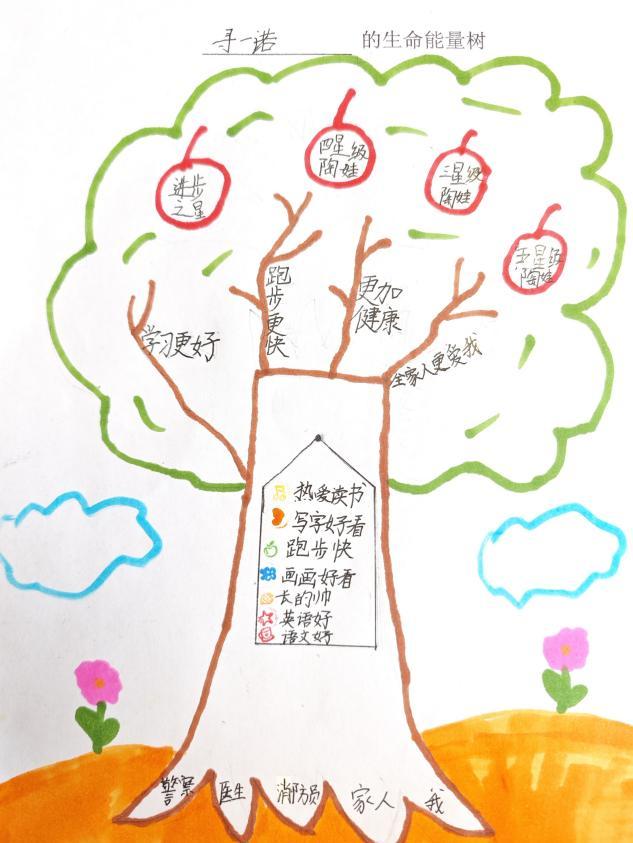 寻一诺 的生命能量树
进步
之星
四星级
陶娃
三星级
陶娃
五星级
陶娃
学习更好
跑步更快
更加
健康
全家人更爱我
热爱读书
写字好看
跑步快
画画好看
长的帅
英语好
语文好
警察 医生 消防员 家人 我